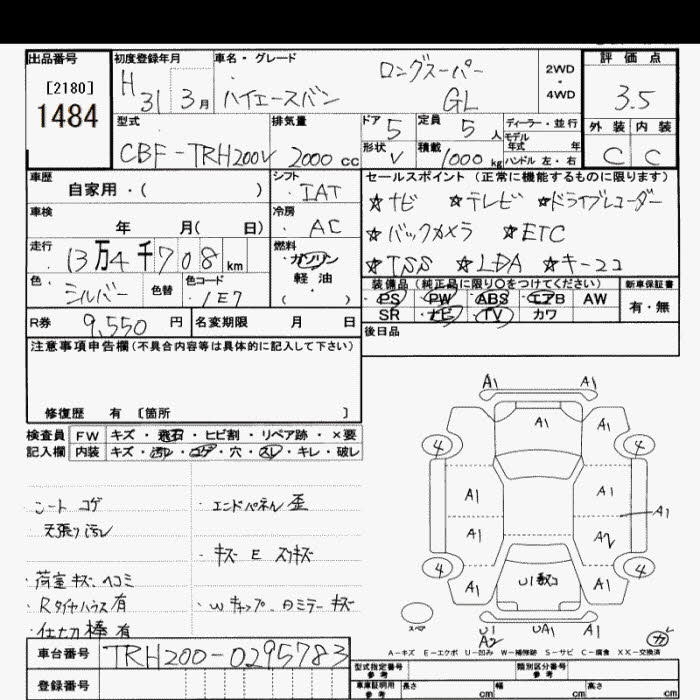 出品番号
[2180]
1484
初度登録年月
H31 3月
車名・グレード
ハイエースバン
ロングスーパー
GL
2WD
・
4WD
評価点
3.5
外装 内装
C C
型式
CBF-TRH200V
排気量
2000 cc
ドア 5
定員 5 人
形状 V
積載 1000 kg
ディーラー・並行
モデル
年式 年
ハンドル 左・右
車歴
自家用・( )
シフト
IAT
車検
年 月( 日)
冷房
AC
走行
13万4千708km
燃料
ガソリン
軽油
( )
色
シルバー
色替
色コード
1E7
R券 9,550 円
名変期限 月 日
セールスポイント (正常に機能するものに限ります)
☆ナビ ☆テレビ ☆ドライブレコーダー
☆バックカメラ ☆ETC
☆TSS ☆LDA ☆キー2コ
装備品 (純正品に限り○をつけてください)
PS PW ABS エアB AW
SR ナビ TV カワ
新車保証書
有・無
後日品
注意事項申告欄(不具合内容等は具体的に記入して下さい)
修復歴 有 〔箇所 〕
検査員 FW キズ・飛石・ヒビ割・リペア跡・×要
記入欄 内装 キズ・汚れ・コゲ・穴・スレ・キレ・破レ
シート コゲ
天張り汚レ
荷室キズ、ヘコミ
Rタイヤハウス有
仕切棒有
・エンドパネル歪
・キズ E スリキズ
・Wキャップ、Dミラーキズ
A1 A1
A1 A1 A1
4 4
A1 A1
A1
A1 A2
4 4
A1 U1数コ A1
U1 UA1 A1
A2
スペア
A-キズ E-エクボ U-凹み W-補修跡 S-サビ C-腐食 XX-交換済
車台番号 TRH200-0295783
登録番号
型式指定番号
参考
類別区分番号
参考
車庫証明用
参考
長さ cm 幅 cm 高さ cm